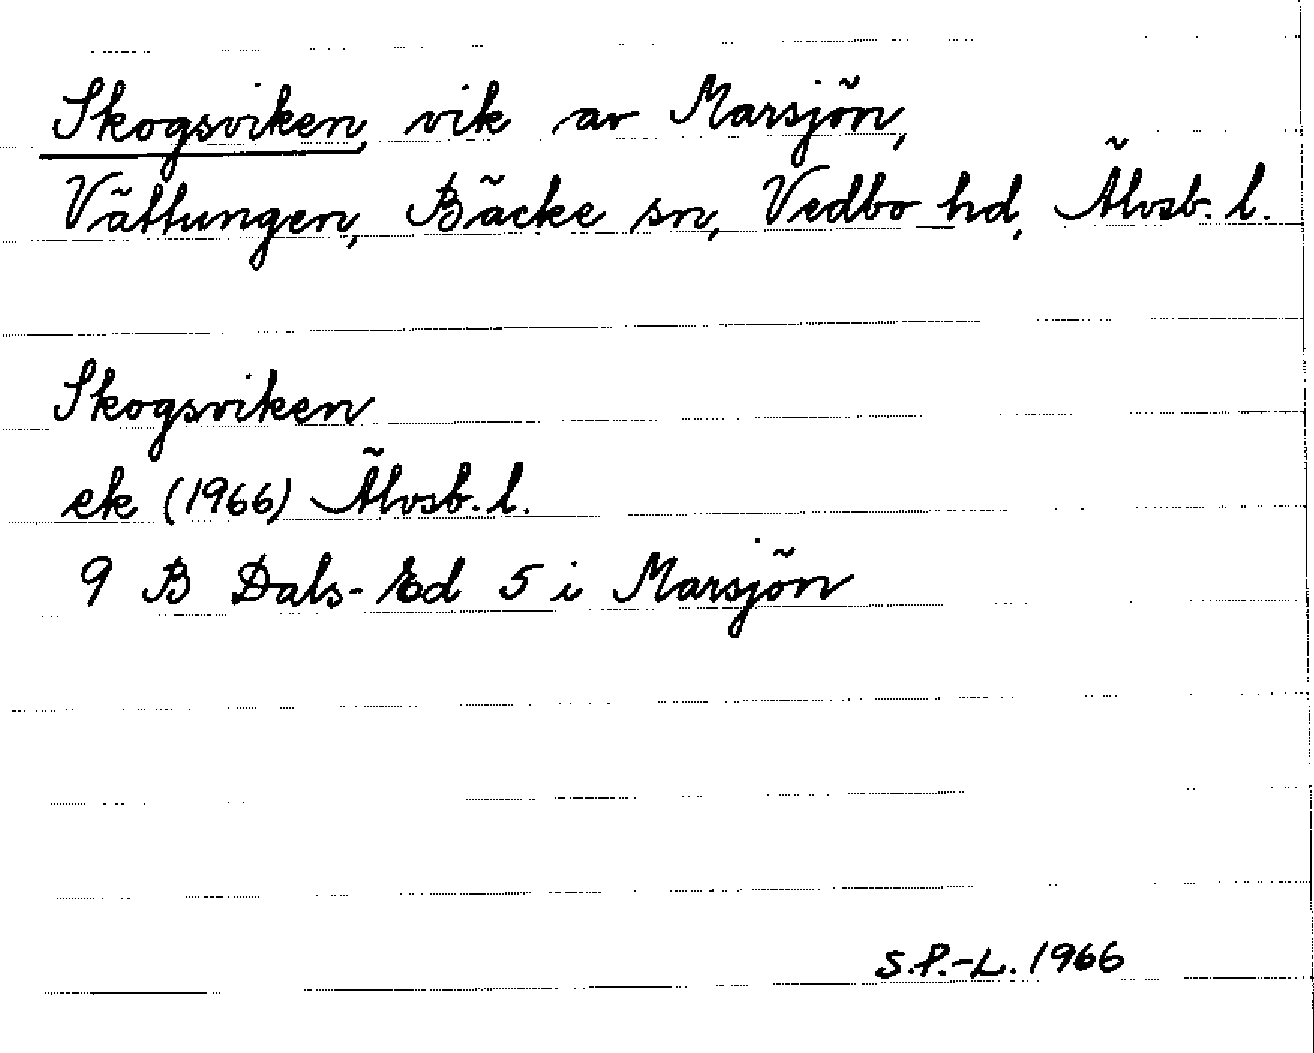 Skogsviken, vik av Marsjön,
Vättungen, Bäcke sn, Vedbo hd, Älvsb. l.
Skogsviken
ek (1966) Älvsb. l.
9 B Dals-Ed 5 i Marsjön
S.P.-L. 1966